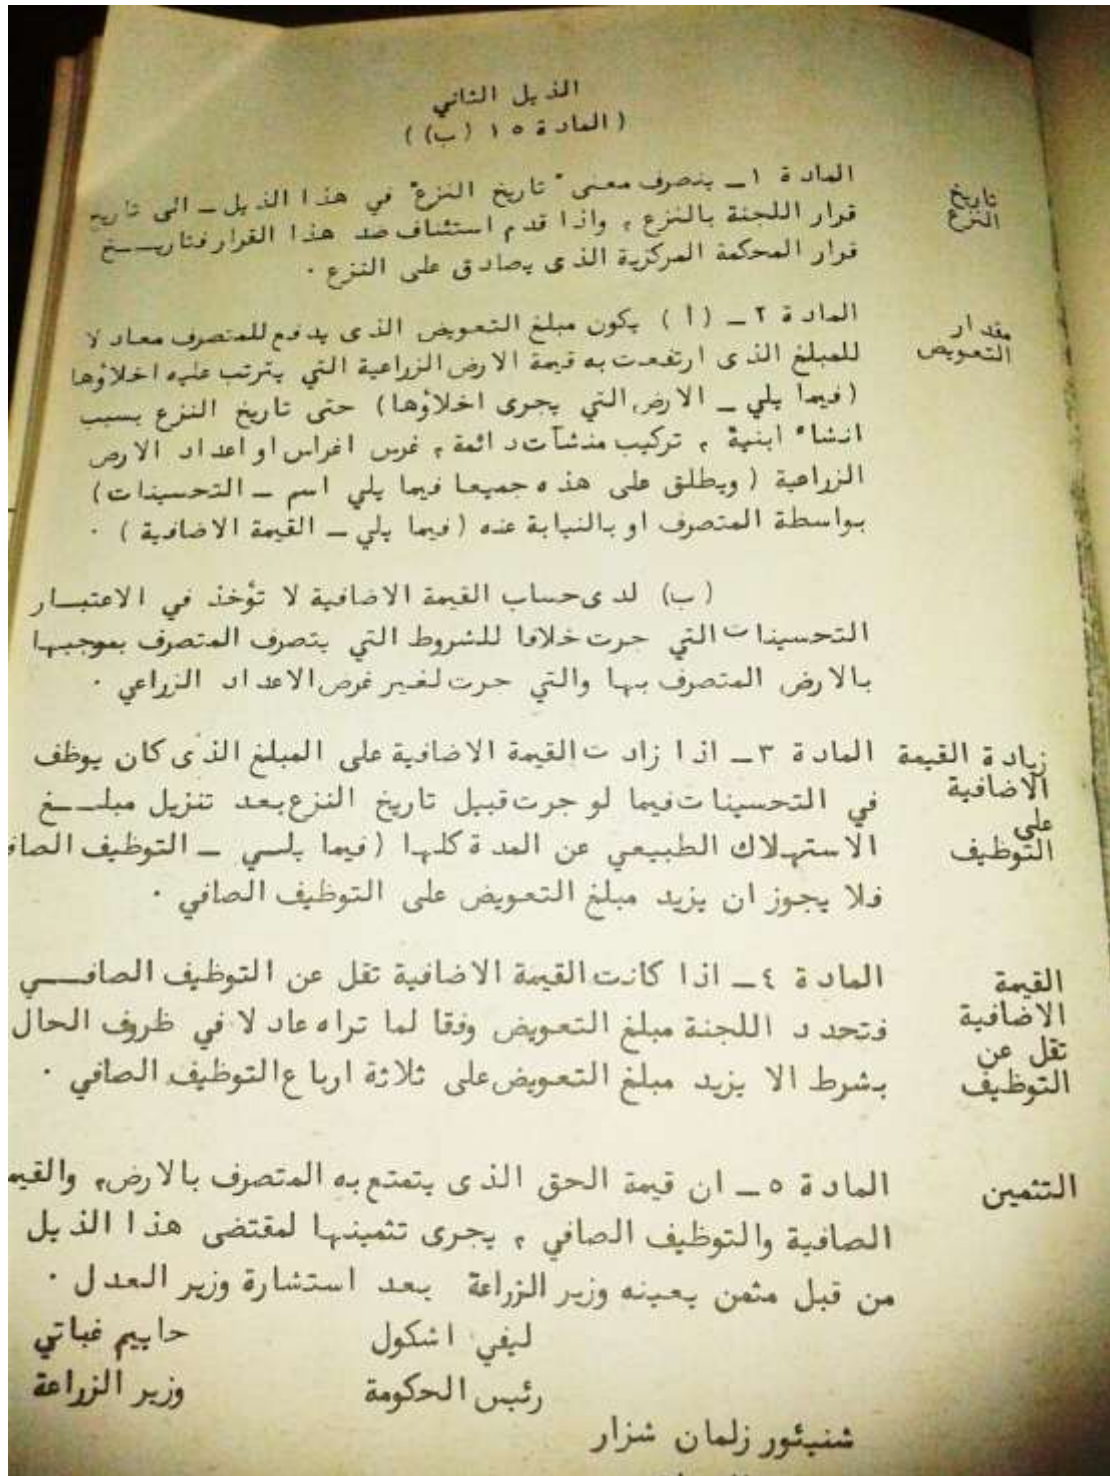 الذيل الثاني
(المادة ١٥ (ب))
تاريخ
النزع
المادة ١ـ ينصرف معنى "تاريخ النزع" في هذا الذيل ـ الى تاريخ
قرار اللجنة بالنزع ، واذا قدم استئناف ضد هذا القرار فتاريـــخ
قرار المحكمة المركزية الذى يصادق على النزع .
مقدار
التعويض
المادة ٢ـ (أ) يكون مبلغ التعويض الذى يدفع للمتصرف معادلا
للمبلغ الذى ارتفعت به قيمة الارض الزراعية التي يترتب عليه اخلاؤها
(فيما يلي ـ الارض التي يجرى اخلاؤها) حتى تاريخ النزع بسبب
انشاء ابنية ، تركيب منشآت دائمة ، غرس اغراس او اعداد الارض
الزراعية (ويطلق على هذه جميعا فيما يلي اسم ـ التحسينات)
بواسطة المتصرف او بالنيابة عنه (فيما يلي ـ القيمة الاضافية) .
(ب) لدى حساب القيمة الاضافية لا تؤخذ في الاعتبـــار
التحسينات التي جرت خلافا للشروط التي يتصرف المتصرف بموجبها
بالارض المتصرف بها والتي جرت لغير غرض الاعداد الزراعي .
زيادة القيمة
الاضافية
على
التوظيف
المادة ٣ـ اذا زادت القيمة الاضافية على المبلغ الذى كان يوظف
في التحسينات فيما لو جرت قبيل تاريخ النزع بعد تنزيل مبلـــغ
الاستهلاك الطبيعي عن المدة كلها (فيما يلـــي ـ التوظيف الصاف
فلا يجوز ان يزيد مبلغ التعويض على التوظيف الصافي .
القيمة
الاضافية
تقل عن
التوظيف
المادة ٤ـ اذا كانت القيمة الاضافية تقل عن التوظيف الصافـــي
فتحدد اللجنة مبلغ التعويض وفقا لما تراه عادلا في ظروف الحال
بشرط الا يزيد مبلغ التعويض على ثلاثة ارباع التوظيف الصافي .
التثمين
المادة ٥ـ ان قيمة الحق الذى يتمتع به المتصرف بالارض، والقيم
الصافية والتوظيف الصافي ، يجرى تثمينها لمقتضى هذا الذيل
من قبل مثمن يعينه وزير الزراعة بعد استشارة وزير العدل .
ليفي اشكول
حاييم غباتي
رئيس الحكومة
وزير الزراعة
شنيئور زلمان شزار